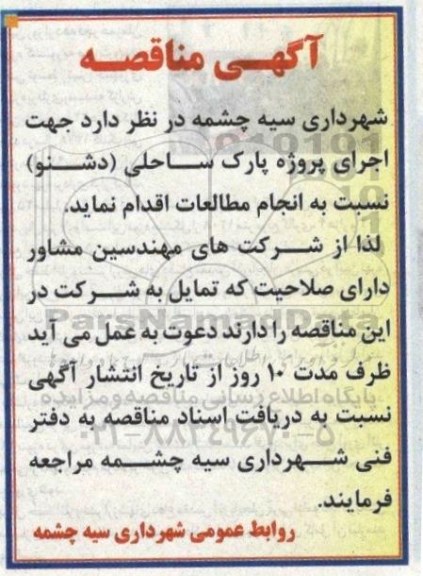 آگهی مناقصه
شهرداری سیه چشمه در نظر دارد جهت
اجرای پروژه پارک ساحلی (دشنو)
نسبت به انجام مطالعات اقدام نماید.
لذا از شرکت های مهندسین مشاور
دارای صلاحیت که تمایل به شرکت در
این مناقصه را دارند دعوت به عمل می آید
ظرف مدت ۱۰ روز از تاریخ انتشار آگهی
نسبت به دریافت اسناد مناقصه به دفتر
فنی شهرداری سیه چشمه مراجعه
فرمایند.
روابط عمومی شهرداری سیه چشمه
ParsNamadData
پایگاه اطلاع رسانی مناقصه و مزایده